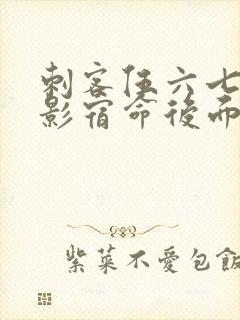 刺客伍六七
影宿命後而
紫菜不愛包飯